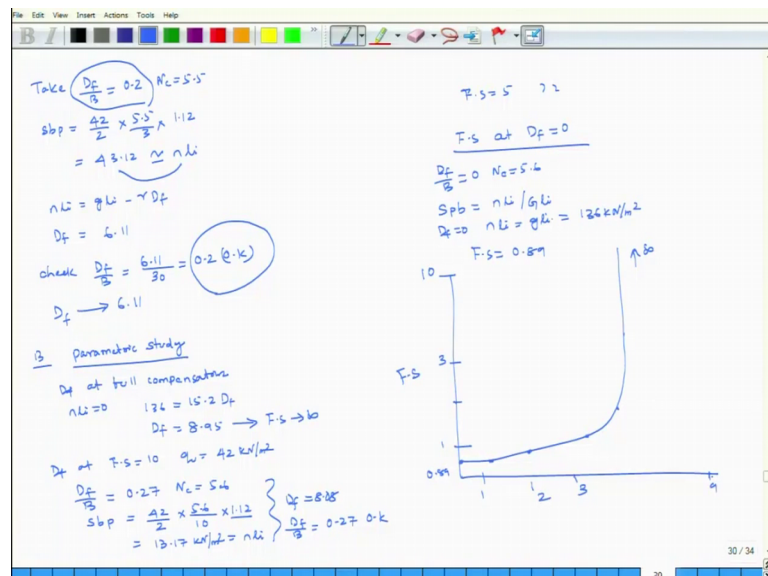 File Edit View Insert Actions Tools Help
B I
Take Df/B = 0.2 Nc = 5.5
sbp = 42/2 × 5.5/3 × 1.12
= 43.12 ≃ nli
nli = gli - γDf
Df = 6.11
check Df/B = 6.11/30 = 0.2 (O.K)
Df → 6.11
B parametric study
Df at full compensation
nli = 0 136 = 15.2 Df
Df = 8.95 → F.S → ∞
Df at F.S = 10 qu = 42 kN/m²
Df/B = 0.27 Nc = 5.6
sbp = 42/2 × 5.6/10 × 1.12
= 13.17 kN/m² = nli
Df = 8.08
Df/B = 0.27 O.K
F.S = 5 ??
F.S at Df = 0
Df/B = 0 Nc = 5.6
Spb = nli / Gli
Df = 0 nli = gli = 136 kN/m²
F.S = 0.89
↑ ∞
10
3
F.S
1
0.89
1 2 3 9
30 / 34
30